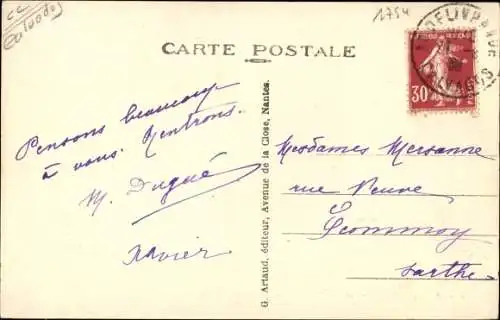 CC
Calvados
1754
DELIVRANDE
CALVADOS
30
CARTE POSTALE
Pensons beaucoup
à vous. Rentrons.
M. Dugué
Xavier
G. Artaud, éditeur, Avenue de la Close, Nantes.
Mesdames Mersanne
rue Neuve
Ecommoy
Sarthe